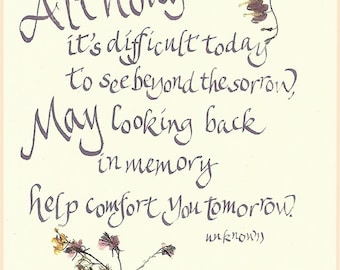 Although
it's difficult today
to see beyond the sorrow,
May looking back
in memory
help comfort you tomorrow.
unknown